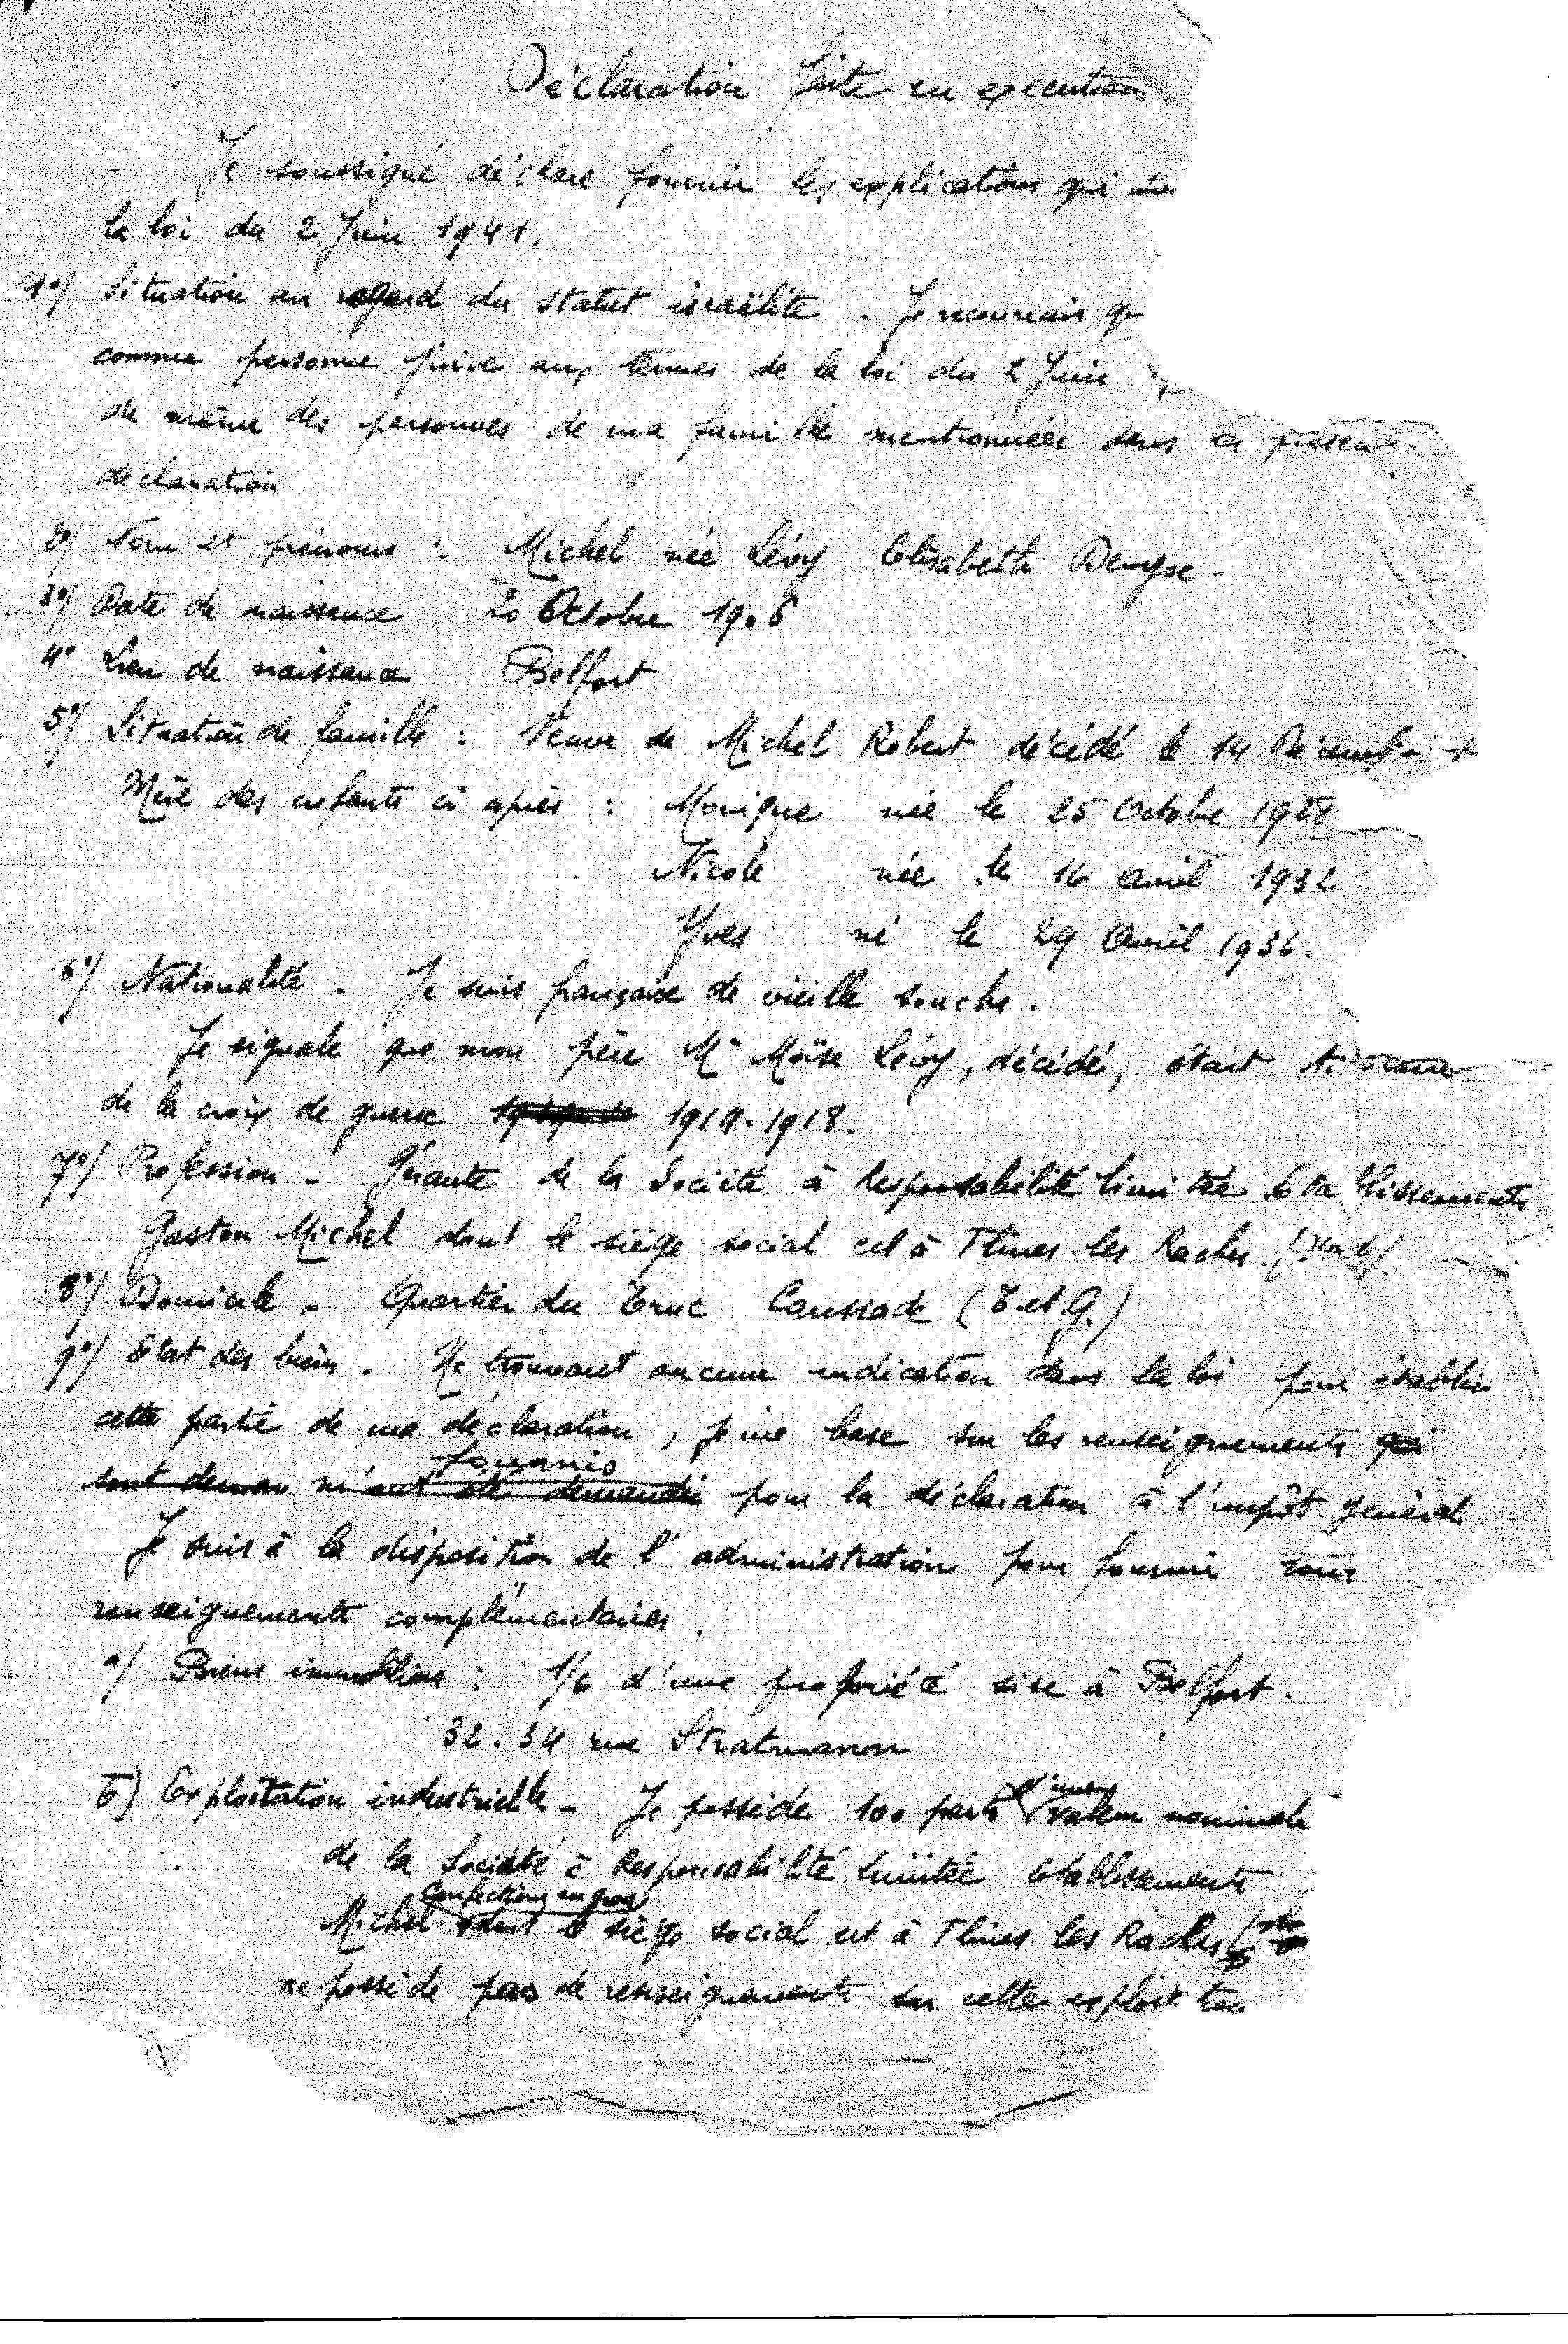 Déclaration faite en execution
Je soussigné déclare fournir les explications qui
la loi du 2 Juin 1941.
1°/ Situation au regard du statut israëlite. Je reconnais q
comme personne juive aux termes de la loi du 2 Juin
de même des personnes de ma famille mentionnées dans la présente
déclaration
2°/ Nom et prénoms : Michel née Lévy Elisabeth Denyse.
3°/ Date de naissance 20 Octobre 1906
4° Lieu de naissance Belfort
5°/ Situation de famille : Veuve de Michel Robert décédé le 14 Décembre
Mère des enfants ci après : Monique née le 25 Octobre 1928
Nicole née le 16 Avril 1932
Yves né le 29 Avril 1936.
6°/ Nationalité. Je suis française de vieille souche.
Je signale que mon père Mr Moïse Lévy, décédé, était titulaire
de la croix de guerre 1914-1918.
7°/ Profession - Gérante de la Société à Responsabilité limitée Etablissements
Gaston Michel dont le siège social est à Flines les Raches (Nord).
8°/ Domicile - Quartier du Truc Caussade (T. et G.)
9°/ Etat des biens. Ne trouvant aucune indication dans la loi pour établir
cette partie de ma déclaration, je me base sur les renseignements qui
fournis
sont m'ont été demandés pour la déclaration à l'impôt général
Je suis à la disposition de l'administration pour fournir tous
renseignements complémentaires.
a/ Biens immobiliers : 1/6 d'une propriété sise à Belfort.
32.34 rue Stratmanon
b) Exploitation industrielle - Je possède 100 parts d'une valeur nominale
de la Société à Responsabilité limitée Etablissements
Confections en gros
Michel dont le siège social est à Flines les Raches
ne possède pas de renseignements sur cette exploitation